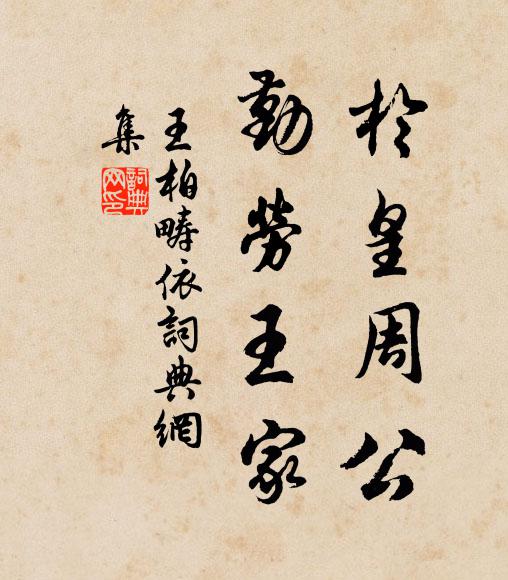 於皇周公
勤勞王家
王柏疇依詞典網
集
詞典
网印